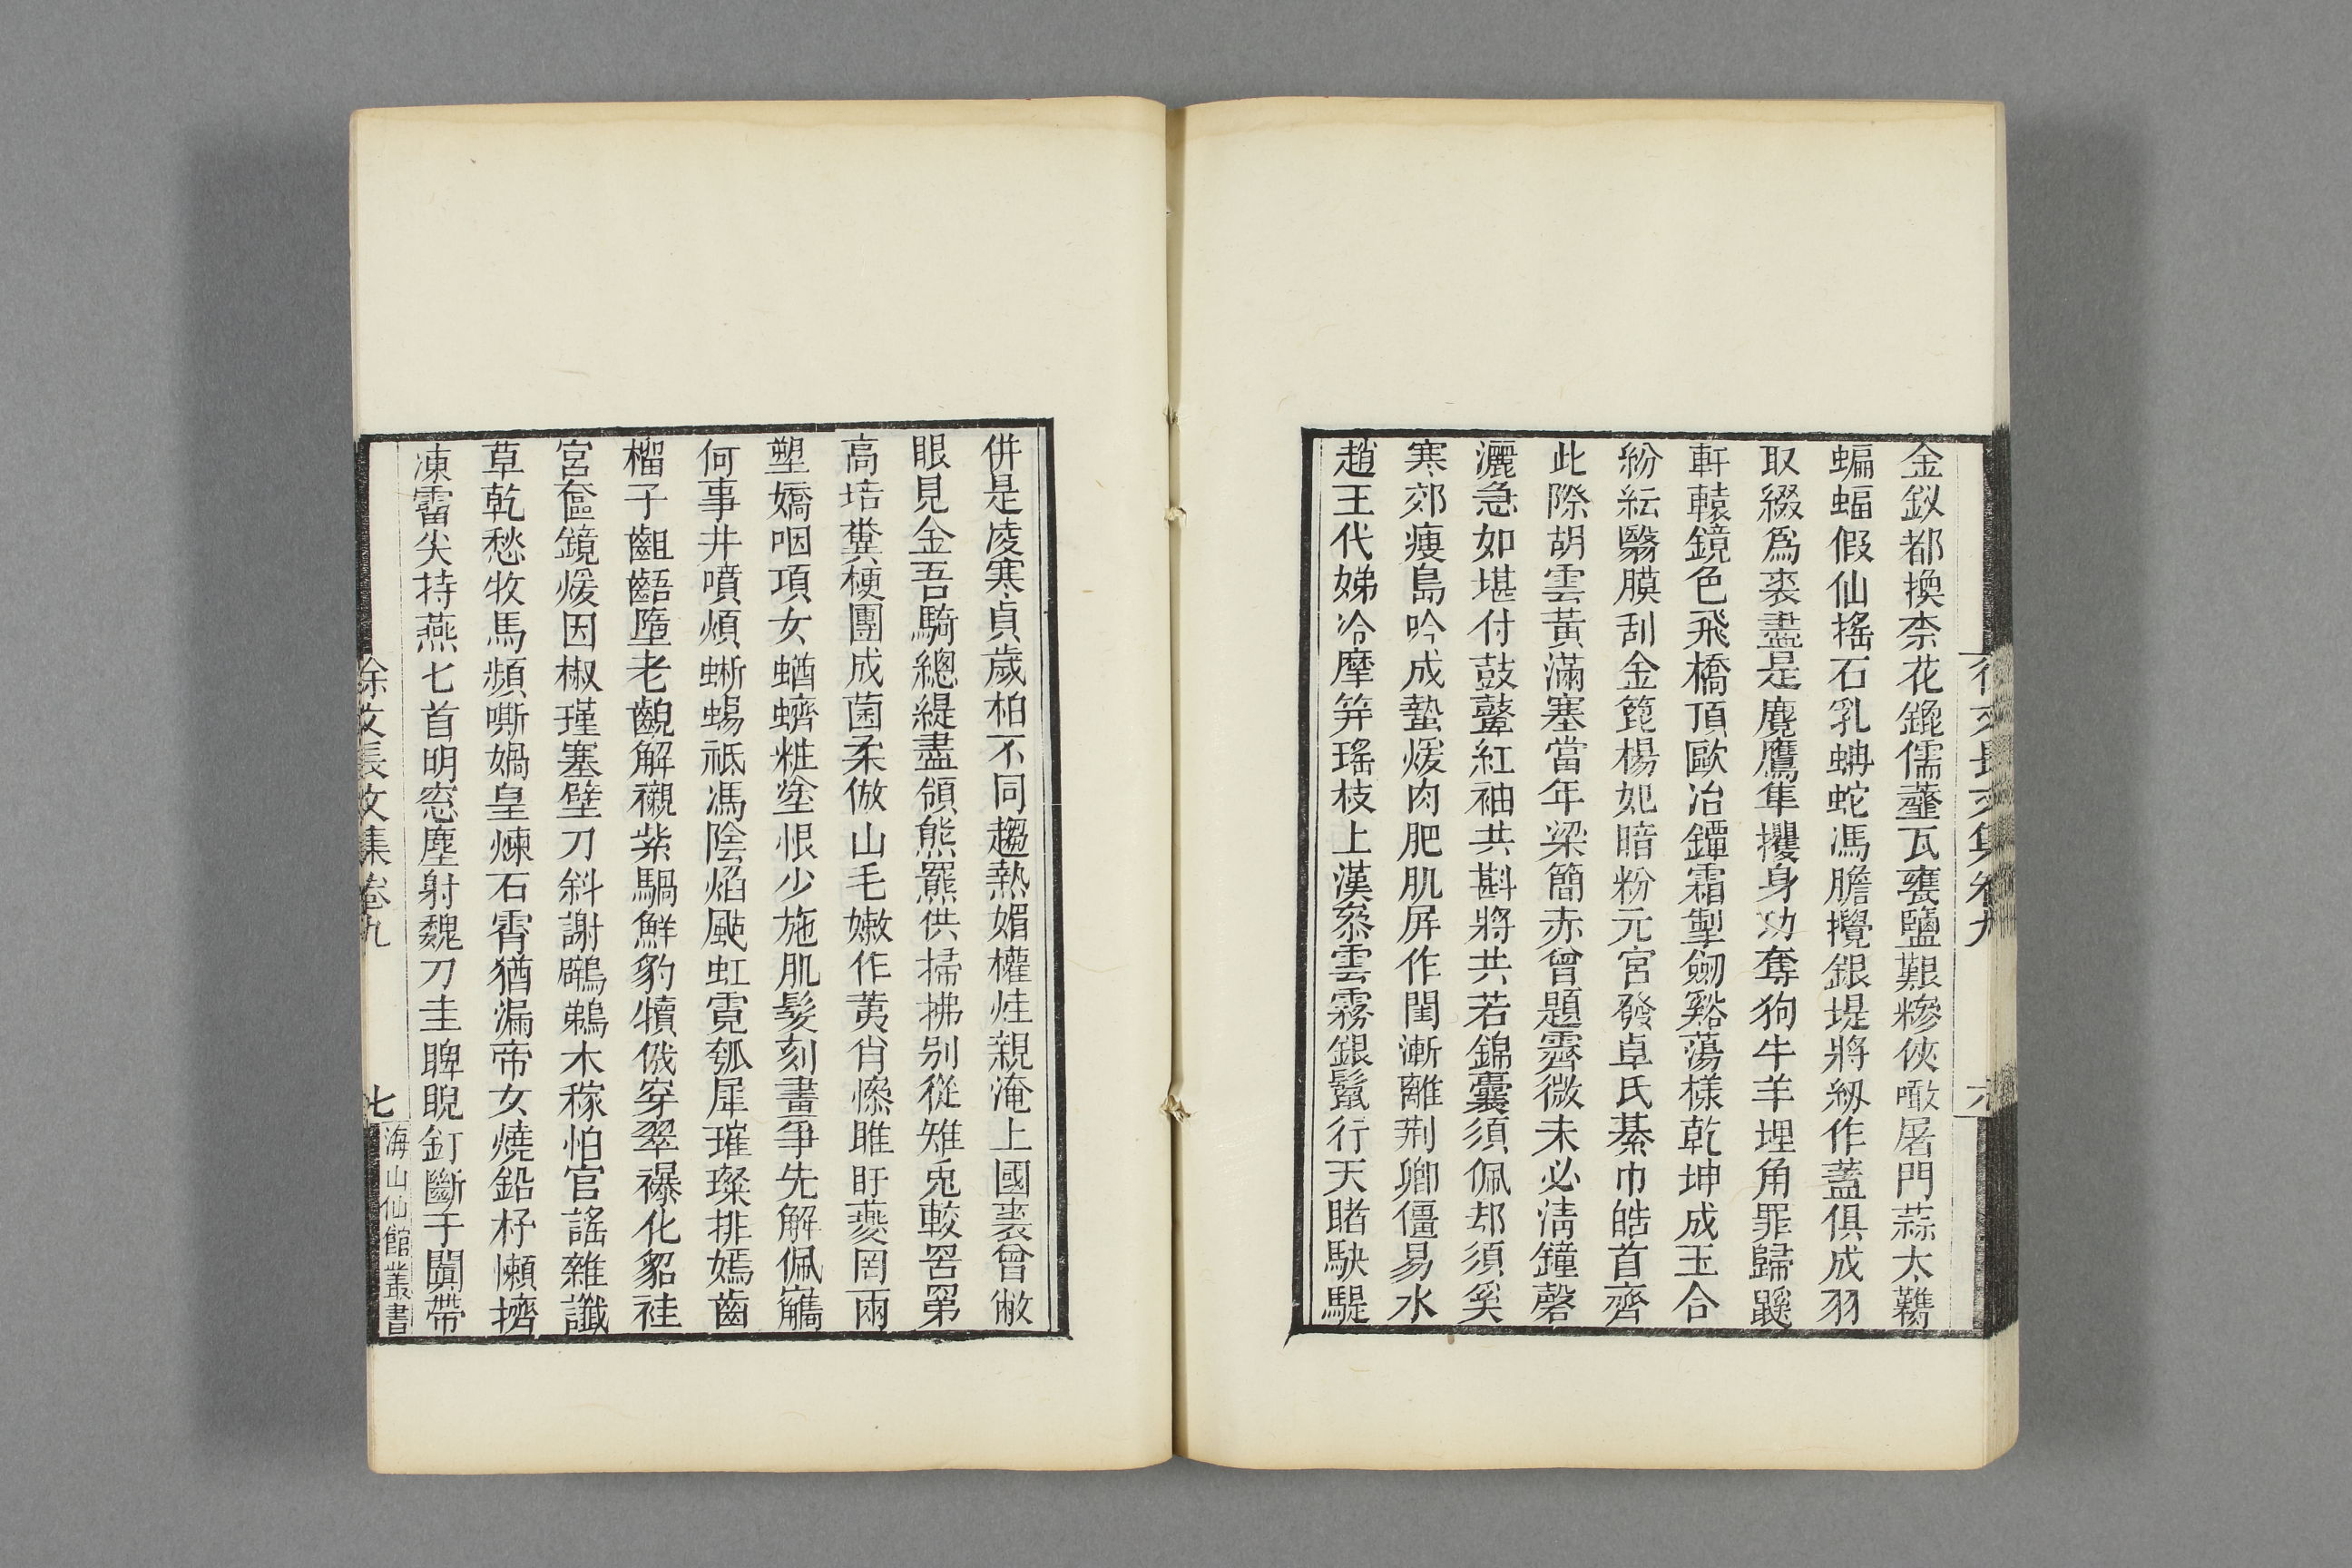 金釵都換柰花鎞儒虀瓦甕鹽艱糝俠噉屠門蒜太觹
蝙蝠假仙搖石乳蚺蛇馮膽攪銀堤將紉作蓋俱成羽
取綴爲裘盡是麑鷹隼攫身功奪狗牛羊埋角罪歸鼷
軒轅鏡色飛橋頂歐冶鐔霜掣劒谿蕩樣乾坤成玉合
紛紜翳膜刮金箆楊妃暗粉元宮發卓氏綦巾皓首齊
此際胡雲黃滿塞當年梁簡赤曾題霽微未必淸鐘磬
灑急如堪付鼓鼙紅袖共斟將共若錦囊須佩却須奚
寒郊瘦島吟成蟄煖肉肥肌屏作閨漸離荆卿僵易水
趙王代娣冷摩笄瑤枝上漢忝雲霧銀鬣行天賭駃騠
徐文長文集卷九
六
併是凌寒貞歲柏不同趨熱媚權烓親淹上國裘曾敝
眼見金吾騎總緹盡領熊羆供掃拂别從雉兎較罟罤
高培糞梗團成菌柔倣山毛嫩作荑肖憏睢盱夔罔兩
塑嬌咽項女蝤蠐粧塗恨少施肌髮刻畫争先解佩觿
何事井噴煩蜥蜴祗馮陰焰颭虹霓瓠犀璀璨排嫣齒
榴子齟齬墮老齯解襯紫騧鮮豹犢俄穿翠襮化貂袿
宮奩鏡煖因椒瑾塞壁刀斜謝鸊鵜木稼怕官謠雜讖
草乾愁牧馬頻嘶媧皇煉石霄猶漏帝女燒鉛杼懶擠
凍霤尖持燕匕首明窓塵射魏刀圭睥睨釘斷于闐帶
徐文長文集卷九
七
海山仙館叢書